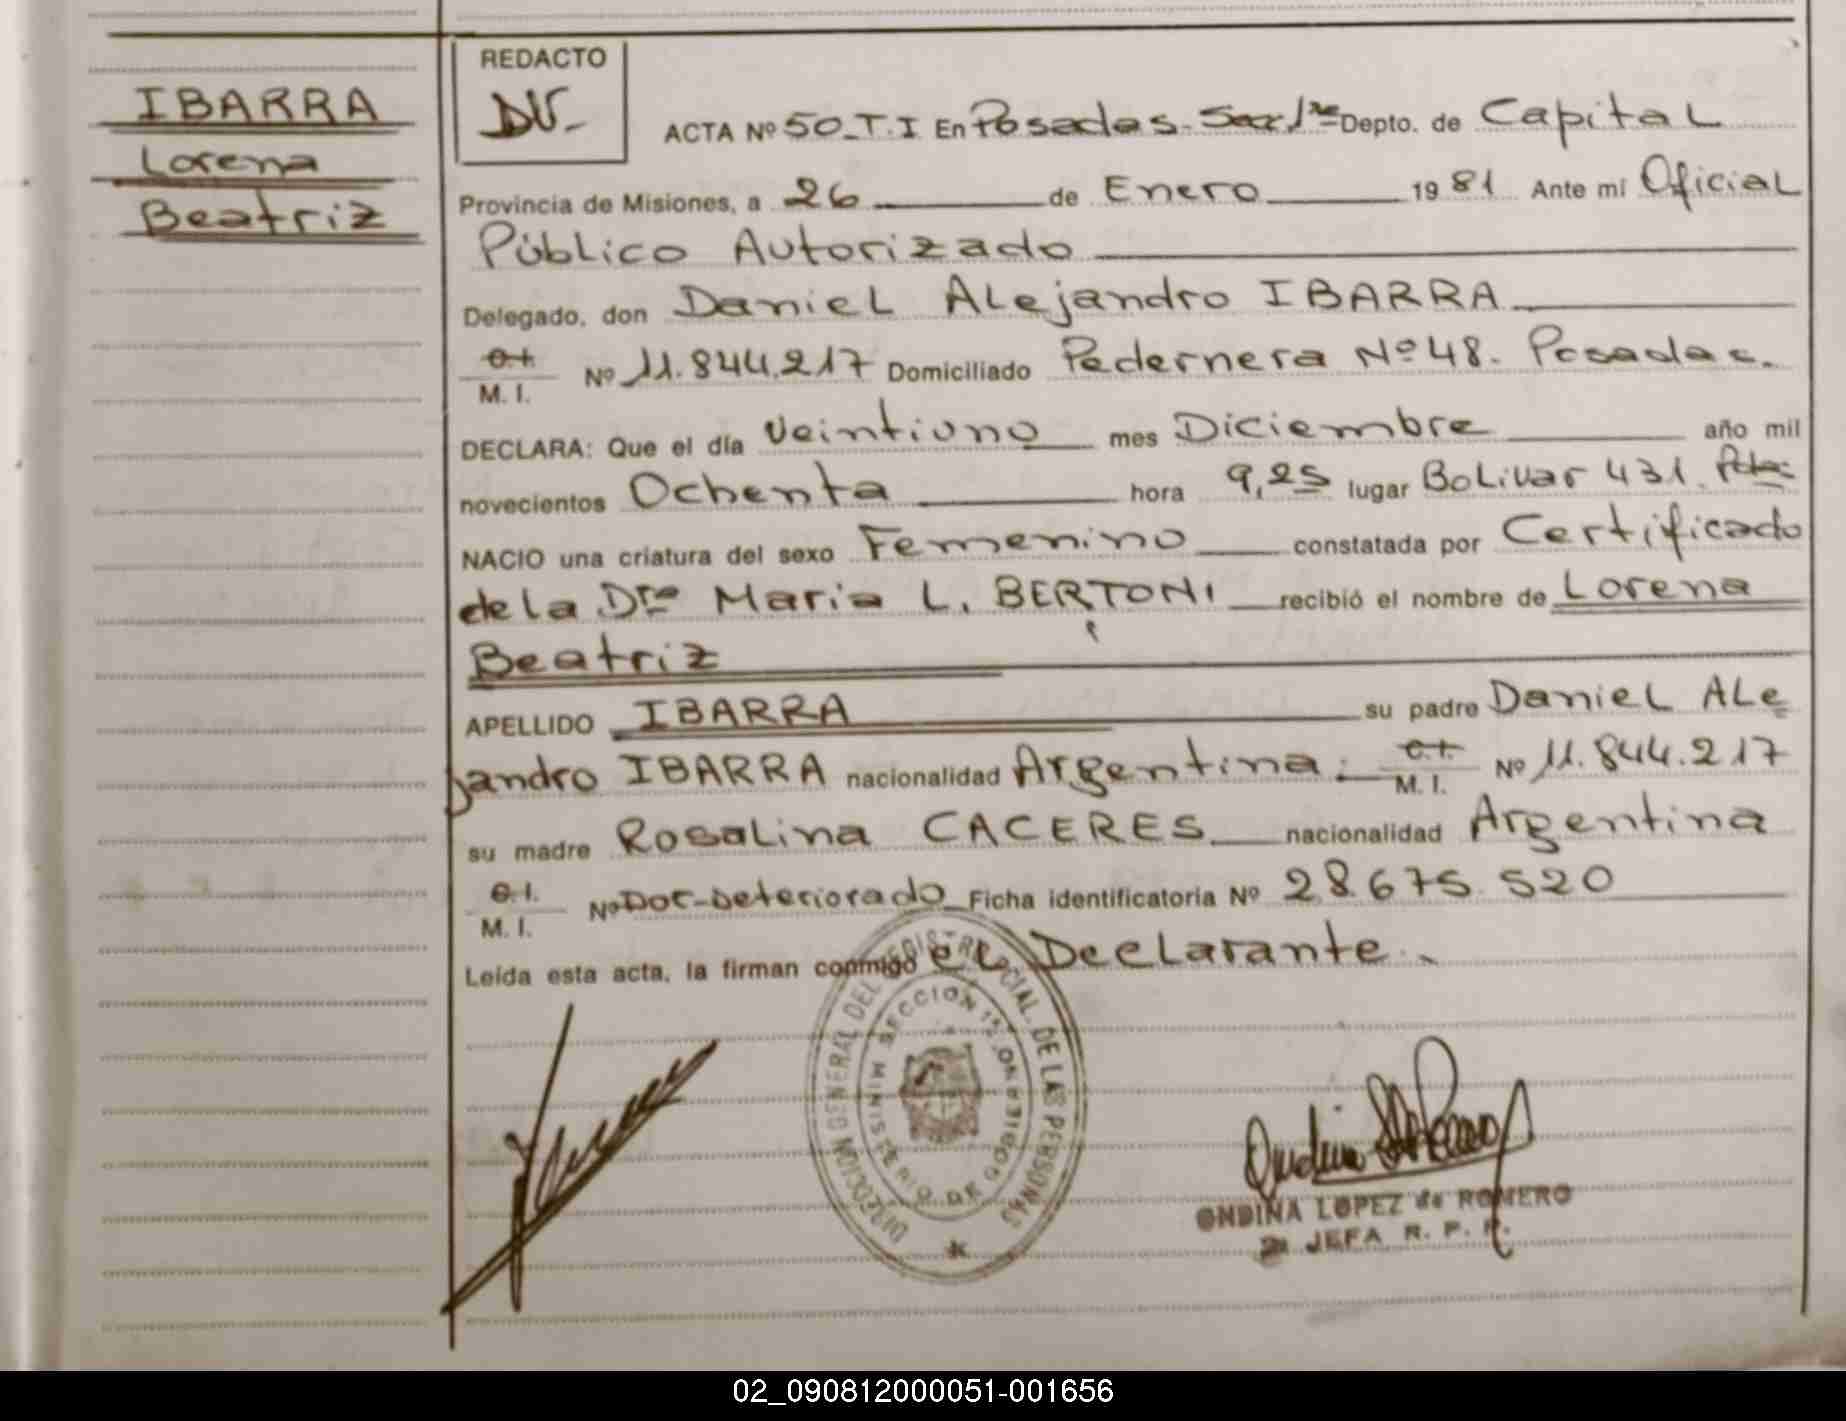 IBARRA
Lorena
Beatriz
REDACTO
ACTA Nº 50_T.I En Posadas. Secc 1ra Depto. de Capital
Provincia de Misiones, a 26 de Enero 1981 Ante mí Oficial
Público Autorizado
Delegado, don Daniel Alejandro IBARRA
C.I. M. I. Nº 11.844.217 Domiciliado Pedernera Nº 48. Posadas.
DECLARA: Que el día Veintiuno mes Diciembre año mil
novecientos Ochenta hora 9,25 lugar Bolivar 431. Pdas
NACIO una criatura del sexo Femenino constatada por Certificado
de la Dra Maria L. BERTONI recibió el nombre de Lorena
Beatriz
APELLIDO IBARRA su padre Daniel Ale
jandro IBARRA nacionalidad Argentina. C.I. M. I. Nº 11.844.217
su madre Rosalina CACERES nacionalidad Argentina
C.I. M. I. Nº Doc-Deteriorado Ficha identificatoria Nº 28.675.520
Leída esta acta, la firman conmigo el Declarante.
DIRECCION GENERAL DEL REGISTR CIAL. DE LAS PERSONAS
SECCION 1ª
MINISTERIO DE GOBIERNO
ONDINA LOPEZ de ROMERO
JEFA R. P. P.
02_090812000051-001656